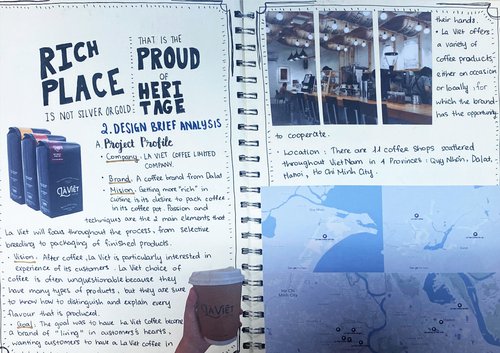 RICH
PLACE
IS NOT SILVER OR GOLD
THAT IS THE
PROUD
OF
HERI
TAGE
2. DESIGN BRIEF ANALYSIS
A. Project Profile
• Company: LA VIET COFFEE LIMITED
COMPANY.
• Brand: A coffee brand from Dalat
• Mision: Getting more "rich" in
cuisine is its desire to pack coffee
in its coffee pot. Passion and
techniques are the 2 main elements that
La Viet will focus throughout the process, from selective
breeding to packaging of finished products.
• Vision: After coffee, La Viet is particularly interested in
experience of its customers. La Viet choice of
coffee is often unquestionable because they
have many types of products, but they are sure
to know how to distinguish and explain every
flavour that is produced.
• Goal: The goal was to have La Viet Coffee become
a brand of "living" in customers's hearts,
wanting customers to have a La Viet coffee in
LAVIET
LAVIET
their hands.
• La Viet offers
a variety of
coffee products,
either on occasion
or locally, for
which the brand
has the opportunity
to cooperate.
• Location: There are 11 coffee shops scattered
throughout Viet Nam in 4 Provinces: Quy Nhon, Dalat,
Hanoi, Ho Chi Minh City.
Ho Chi
Minh City